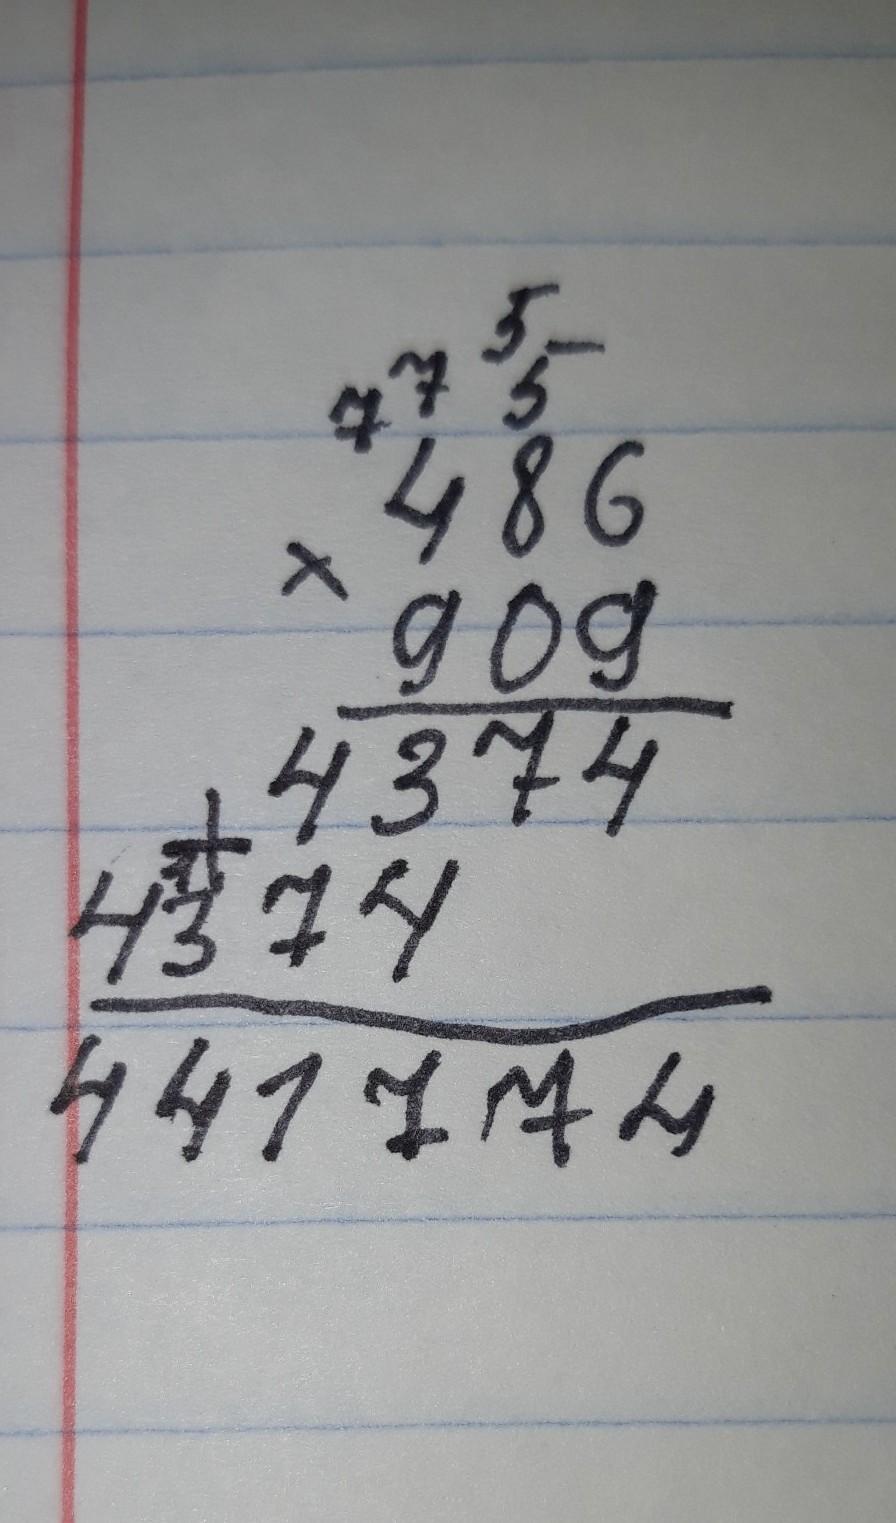 5
7 7 5
486
× 909
4374
+
4374
441774